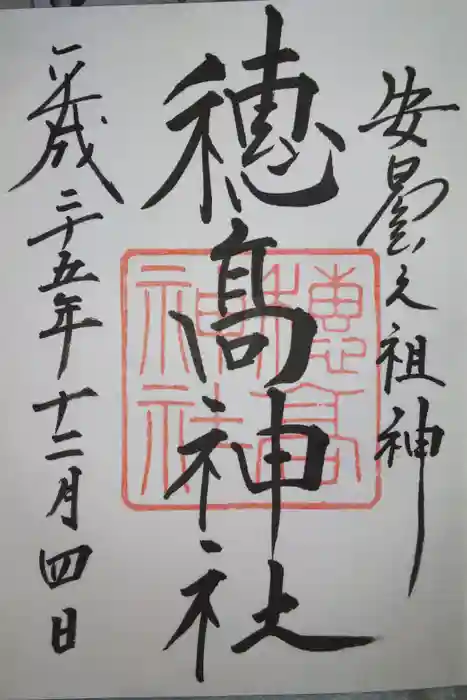 安曇之祖神
穂髙神社
平成二十五年十二月四日
穂高神社